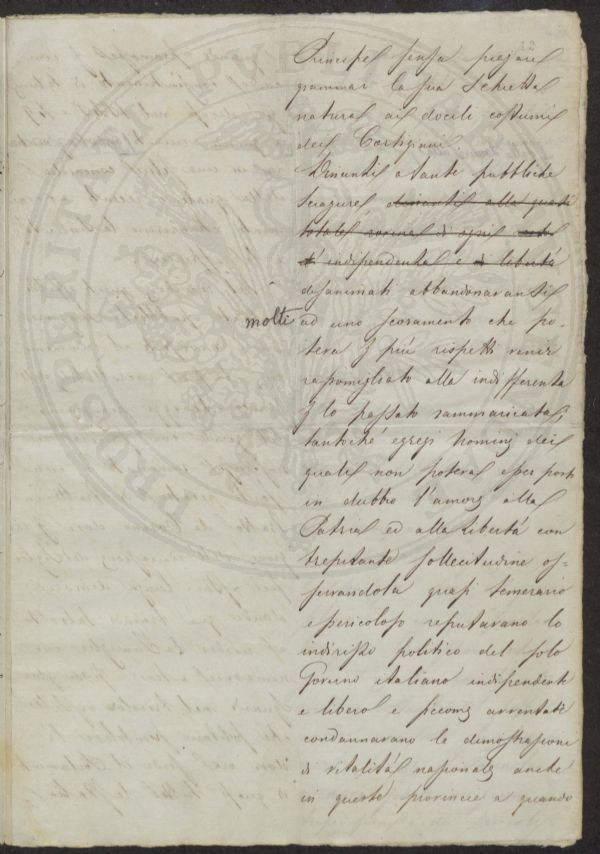 12
Principe senza piegare
la sua Schietta
natura ai docili costumi
dei Cortigiani.
Dinanti a tante pubbliche
sciagure dinanti alla quasi
totale rovina di ogni
indipendenza e di libertà
disanimati abbandonavansi
molti ad uno scoramento che po-
teva p più rispetti venir
rassomigliato alla indifferenza
p lo passato rammaricata;
tantoché egregi Uomini dei
quali non poteva esser posto
in dubbio l'amore alla
Patria ed alla libertà con
trepitante sollecitudine os-
servandola quasi temerario
e pericoloso reputavano lo
indirizzo politico del solo
Governo italiano indipendente
e libero e siccome avventate
condannavano le dimostrazioni
di vitalità nazionale anche
in queste provincie a quando